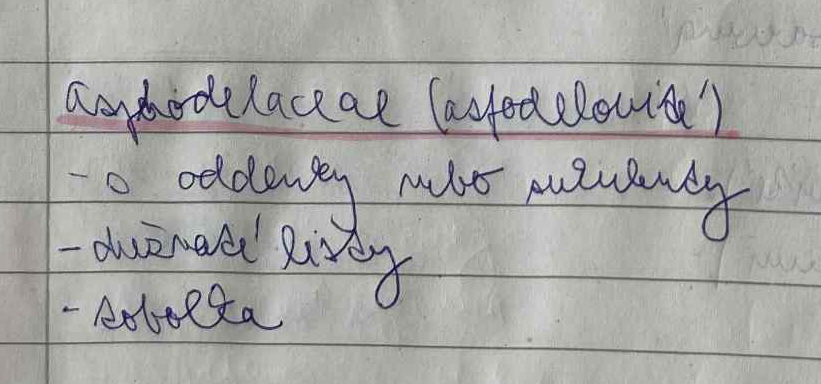 asphodelaceae (asfodelovité)
- o oddenky nebo sukulenty
- dužnaté listy
- tobolka